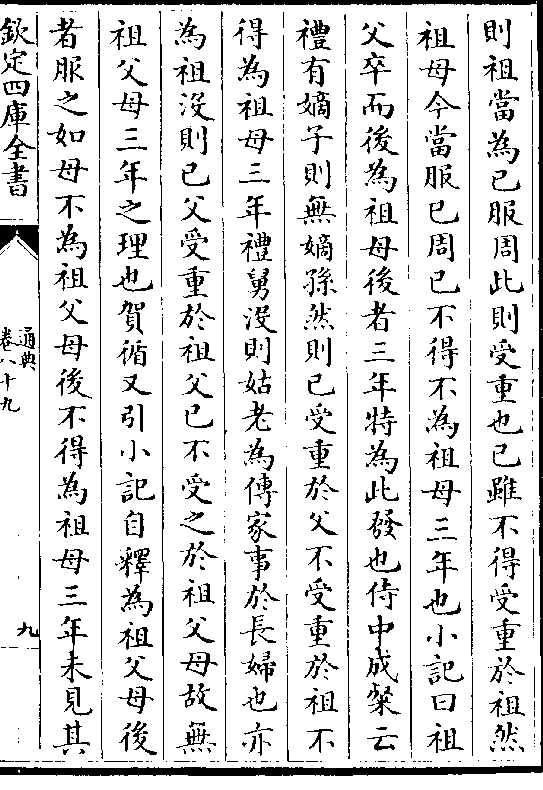 則祖當為已服周此則受重也已雖不得受重於祖然
祖母今當服已周已不得不為祖母三年也小記曰祖
父卒而後為祖母後者三年特為此發也侍中成粲云
禮有嫡子則無嫡孫然則已受重於父不受重於祖不
得為祖母三年禮舅没則姑老為傳家事於長婦也亦
為祖没則已父受重於祖父已不受之於祖父母故無
祖父母三年之理也賀循又引小記自釋為祖父母後
者服之如母不為祖父母後不得為祖母三年未見其
欽定四庫全書
通典
卷八十九
九